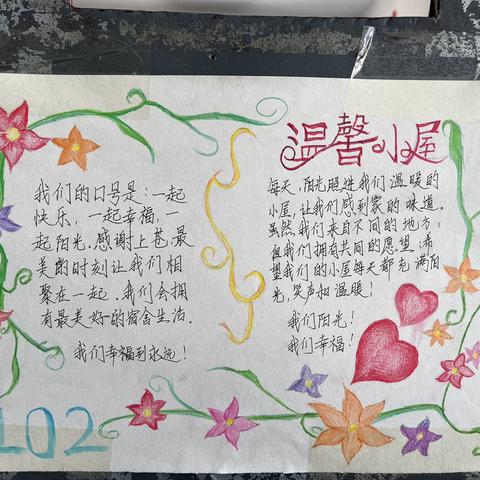 温馨小屋
我们的口号是:一起
快乐,一起幸福,一
起阳光.感谢上苍.最
美的时刻让我们相
聚在一起.我们会拥
有最美好的宿舍生活.
我们幸福到永远!
每天,阳光照进我们温暖的
小屋,让我们感到家的味道.
虽然我们来自不同的地方,
但我们拥有共同的愿望,希
望我们的小屋每天都充满阳
光,笑声和温暖!
我们阳光!
我们幸福!
102